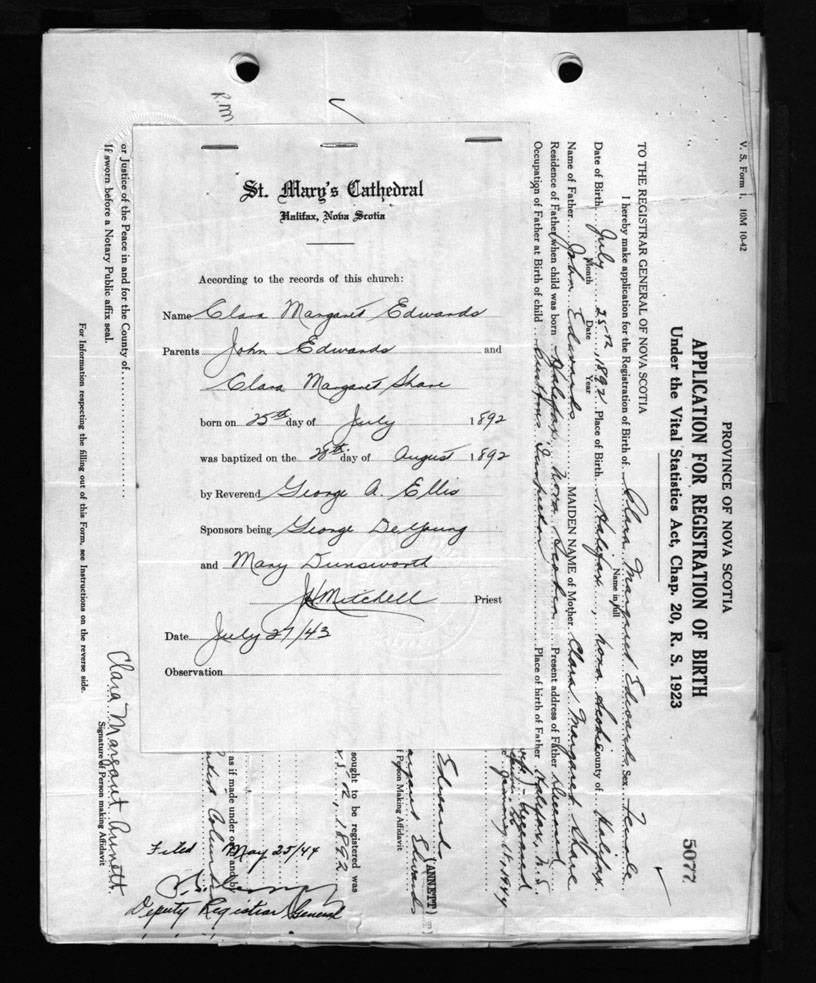 R.M
St. Mary's Cathedral
Halifax, Nova Scotia
According to the records of this church:
Name Clara Margaret Edwards
Parents John Edwards and
Clara Margaret Share
born on 25th day of July 1892
was baptized on the 28th day of August 1892
by Reverend George A. Ellis
Sponsors being George DeYoung
and Mary Dunsworth
JHMitchell Priest
Date July 27/43
Observation
V. S. Form 1. 10M 10-42
PROVINCE OF NOVA SCOTIA
5077
APPLICATION FOR REGISTRATION OF BIRTH
Under the Vital Statistics Act, Chap. 20, R. S. 1923
TO THE REGISTRAR GENERAL OF NOVA SCOTIA
I hereby make application for the Registration of Birth of Clara Margaret Edwards Sex Female
Name in full
Date of Birth July 25th, 1892 Place of Birth Halifax, Nova Scotia County of Halifax
Month Date Year
Name of Father John Edwards MAIDEN NAME of Mother Clara Margaret Share
Residence of Father when child was born Halifax, Nova Scotia Present address of Father Deceased
Occupation of Father at Birth of child Customs Inspector Place of birth of Father Halifax, N.S.
deceased
January 1924
Edward (ANNETT)
argaret Edwards
f Person Making Affidavit
sought to be registered was
1892
as if made under oath and by
Filed May 25/44
Deputy Registrar General
or Justice of the Peace in and for the County of
If sworn before a Notary Public affix seal.
Clara Margaret Annett
Signature of Person making Affidavit
For Information respecting the filling out of this Form, see Instructions on the reverse side.